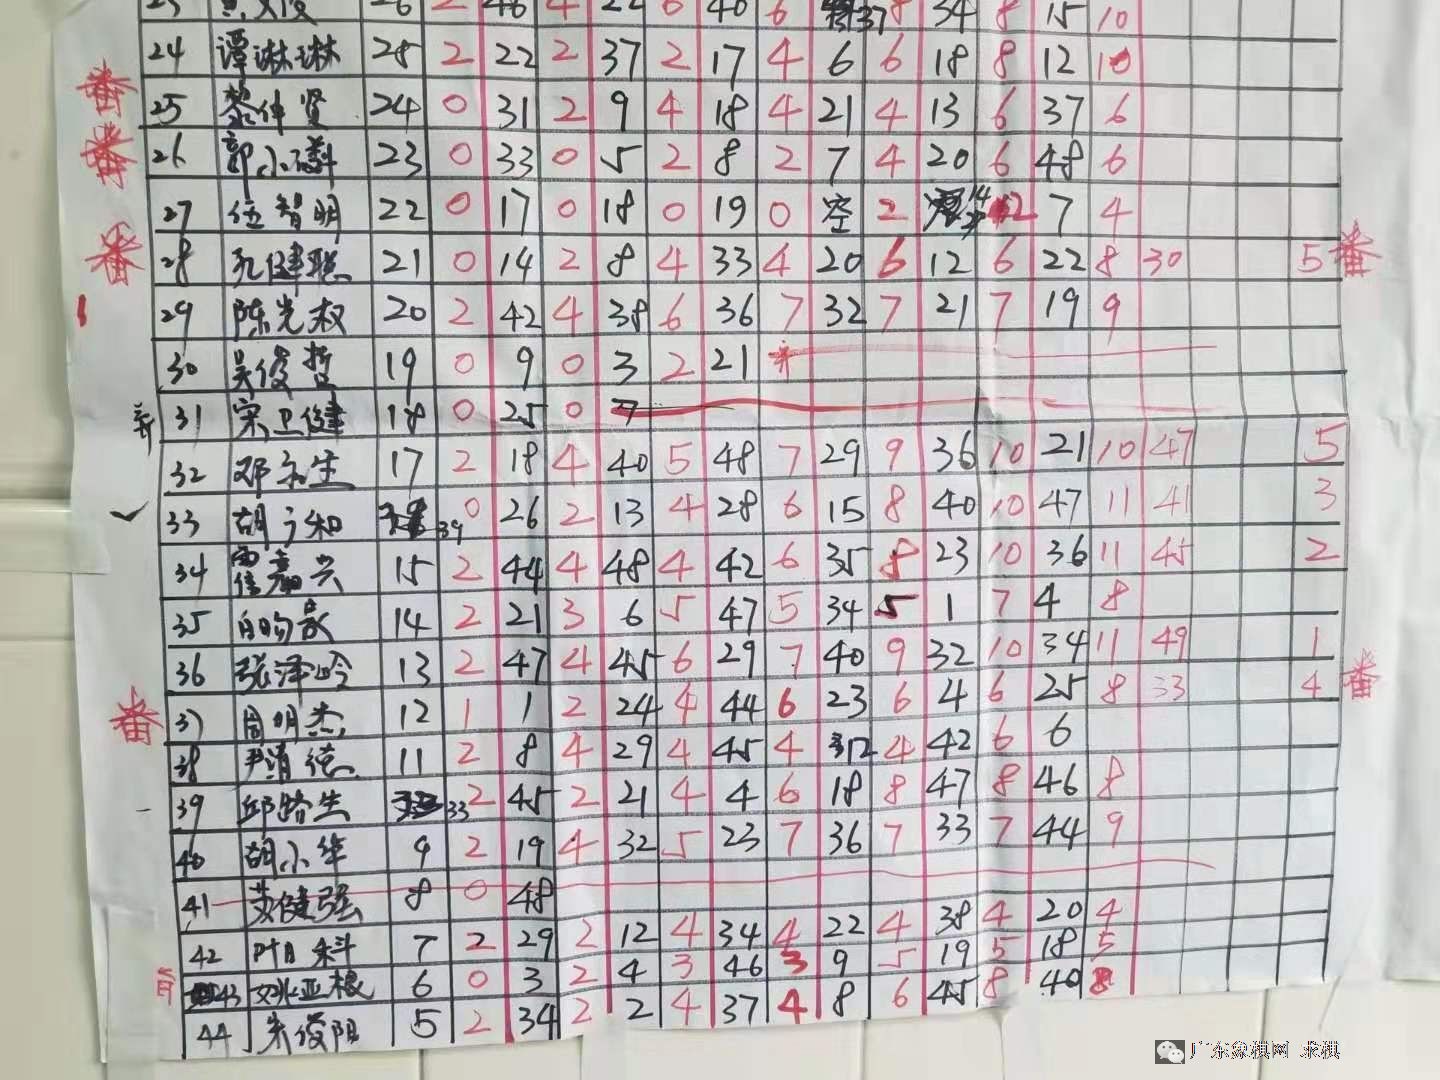 26 2 46 4 22 6 40 6 37 8 34 8 15 10
24 谭琳琳 28 2 22 2 37 2 17 4 6 6 18 8 12 10
番 25 黎仲贤 24 0 31 2 9 4 18 4 21 4 13 6 37 6
番 26 郭小 23 0 33 0 5 2 8 2 7 4 20 6 48 6
27 伍智明 22 0 17 0 18 0 19 0 空 2 14 2 7 4
番 28 孔健聪 21 0 14 2 8 4 33 4 20 6 12 6 22 8 30 5 番
29 陈光权 20 2 42 4 38 6 36 7 32 7 21 7 19 9
30 吴俊哲 19 0 9 0 3 2 21
31 宋卫健 18 0 25 0 7
32 邓永生 17 2 18 4 40 5 48 7 29 9 36 10 21 10 47 5
33 胡广和 39 0 26 2 13 4 28 6 15 8 40 10 47 11 41 3
34 霍嘉兴 15 2 44 4 48 4 42 6 35 8 23 10 36 11 45 2
35 14 2 21 3 6 5 47 5 34 5 1 7 4 8
36 张泽吟 13 2 47 4 45 6 29 7 40 9 32 10 34 11 49 1
番 37 周明杰 12 1 1 2 24 4 44 6 23 6 4 6 25 8 33 4 番
38 尹清德 11 2 8 4 29 4 45 4 12 4 42 6 6
39 邱路生 33 2 45 2 21 4 4 6 18 8 47 8 46 8
40 胡小华 9 2 19 4 32 5 23 7 36 7 33 7 44 9
41 苏健强 8 0 48
42 叶日科 7 2 29 2 12 4 34 4 22 4 38 4 20 4
43 姚亚根 6 0 3 2 4 3 46 3 9 5 19 5 18 5
44 朱俊阳 5 2 34 2 2 4 37 4 8 6 45 8 40 8
广东象棋网 求棋